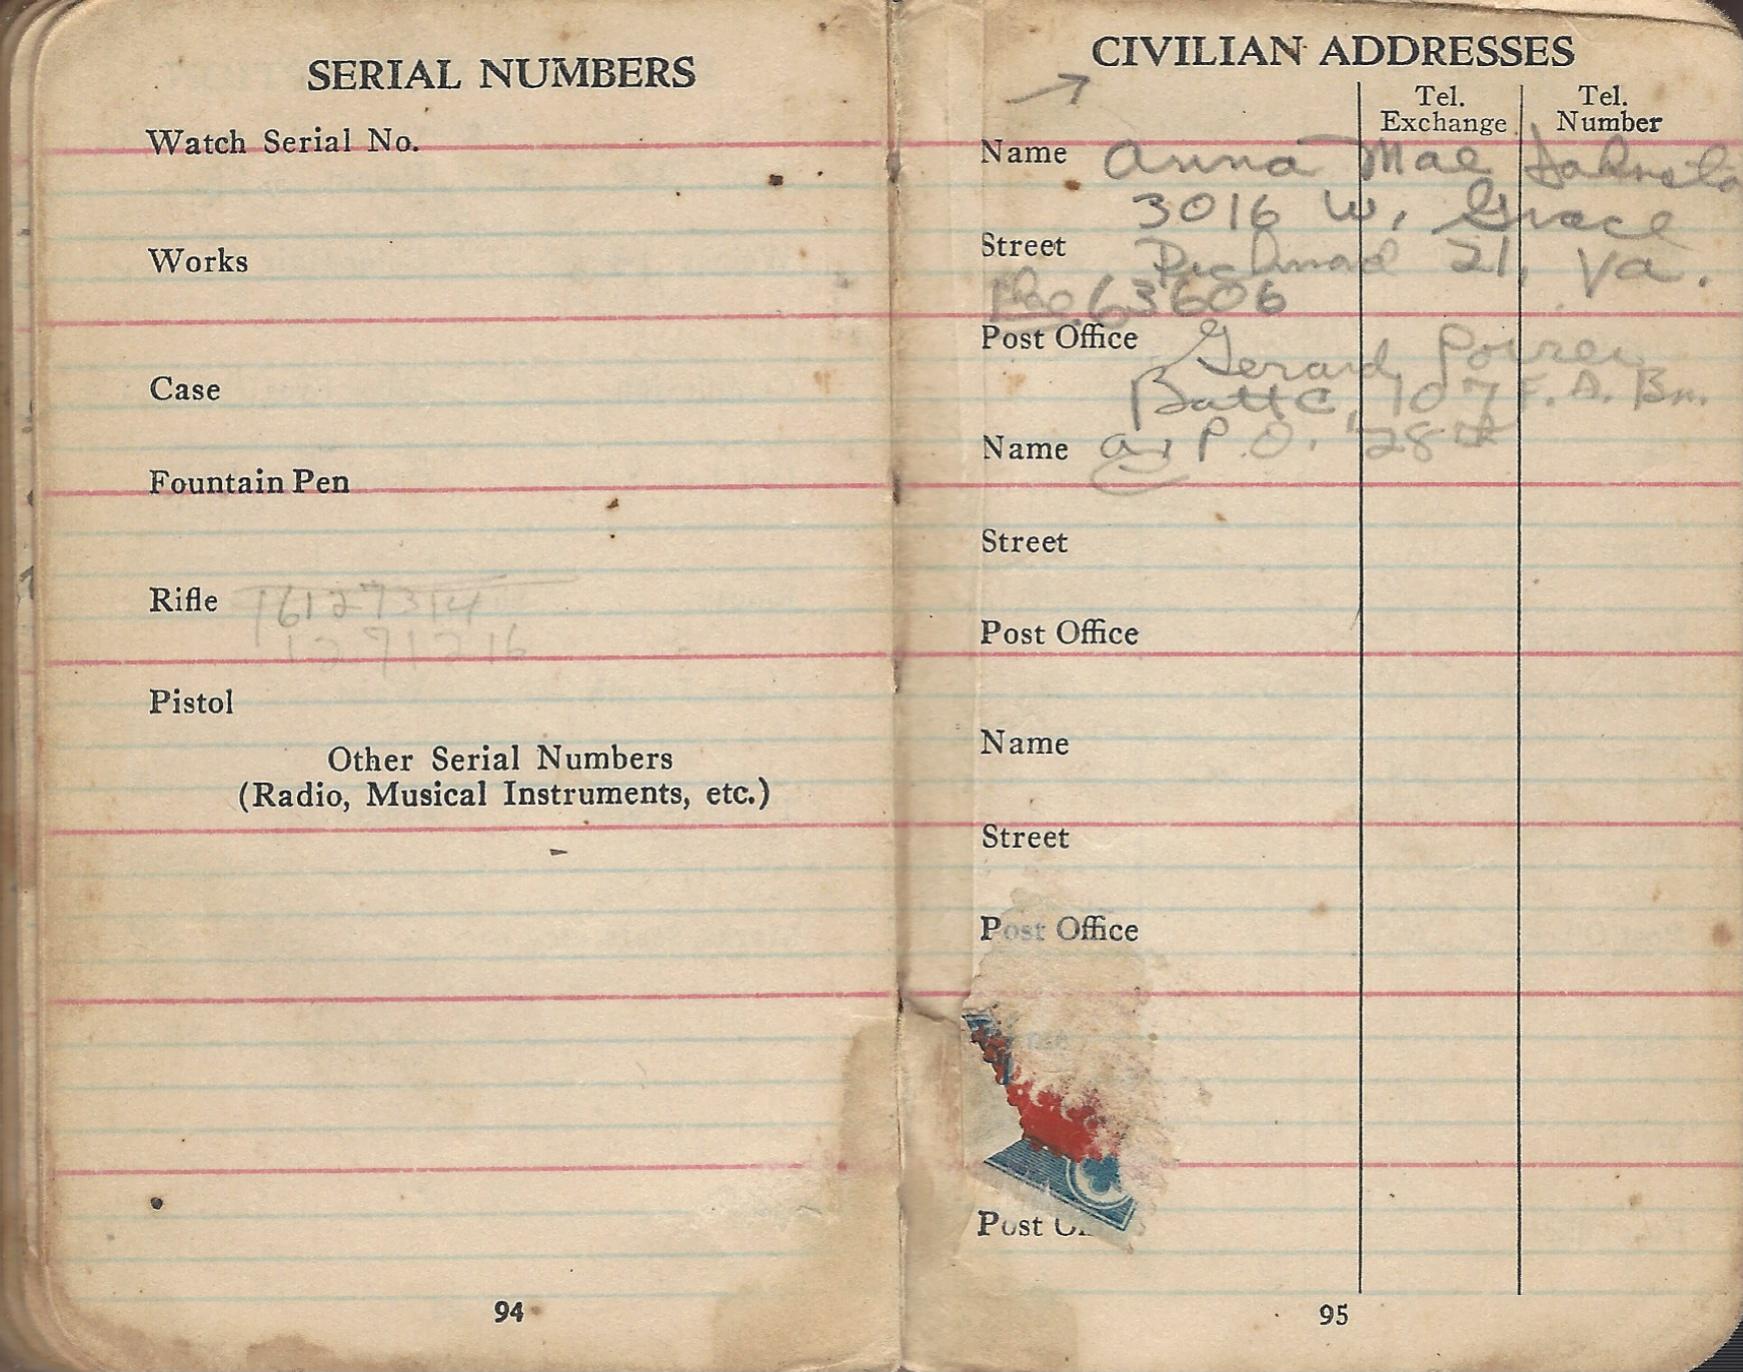 SERIAL NUMBERS
Watch Serial No.
Works
Case
Fountain Pen
Rifle 16127314
1291216
Pistol
Other Serial Numbers
(Radio, Musical Instruments, etc.)
94
CIVILIAN ADDRESSES
Tel. Exchange
Tel. Number
Name Anna Mae
3016 W. Grace
Street Richmond 21, Va.
63606
Post Office Gerard
Batt C, 107 F. A. Bn.
Name P.O. 28th
Street
Post Office
Name
Street
Post Office
Post
95